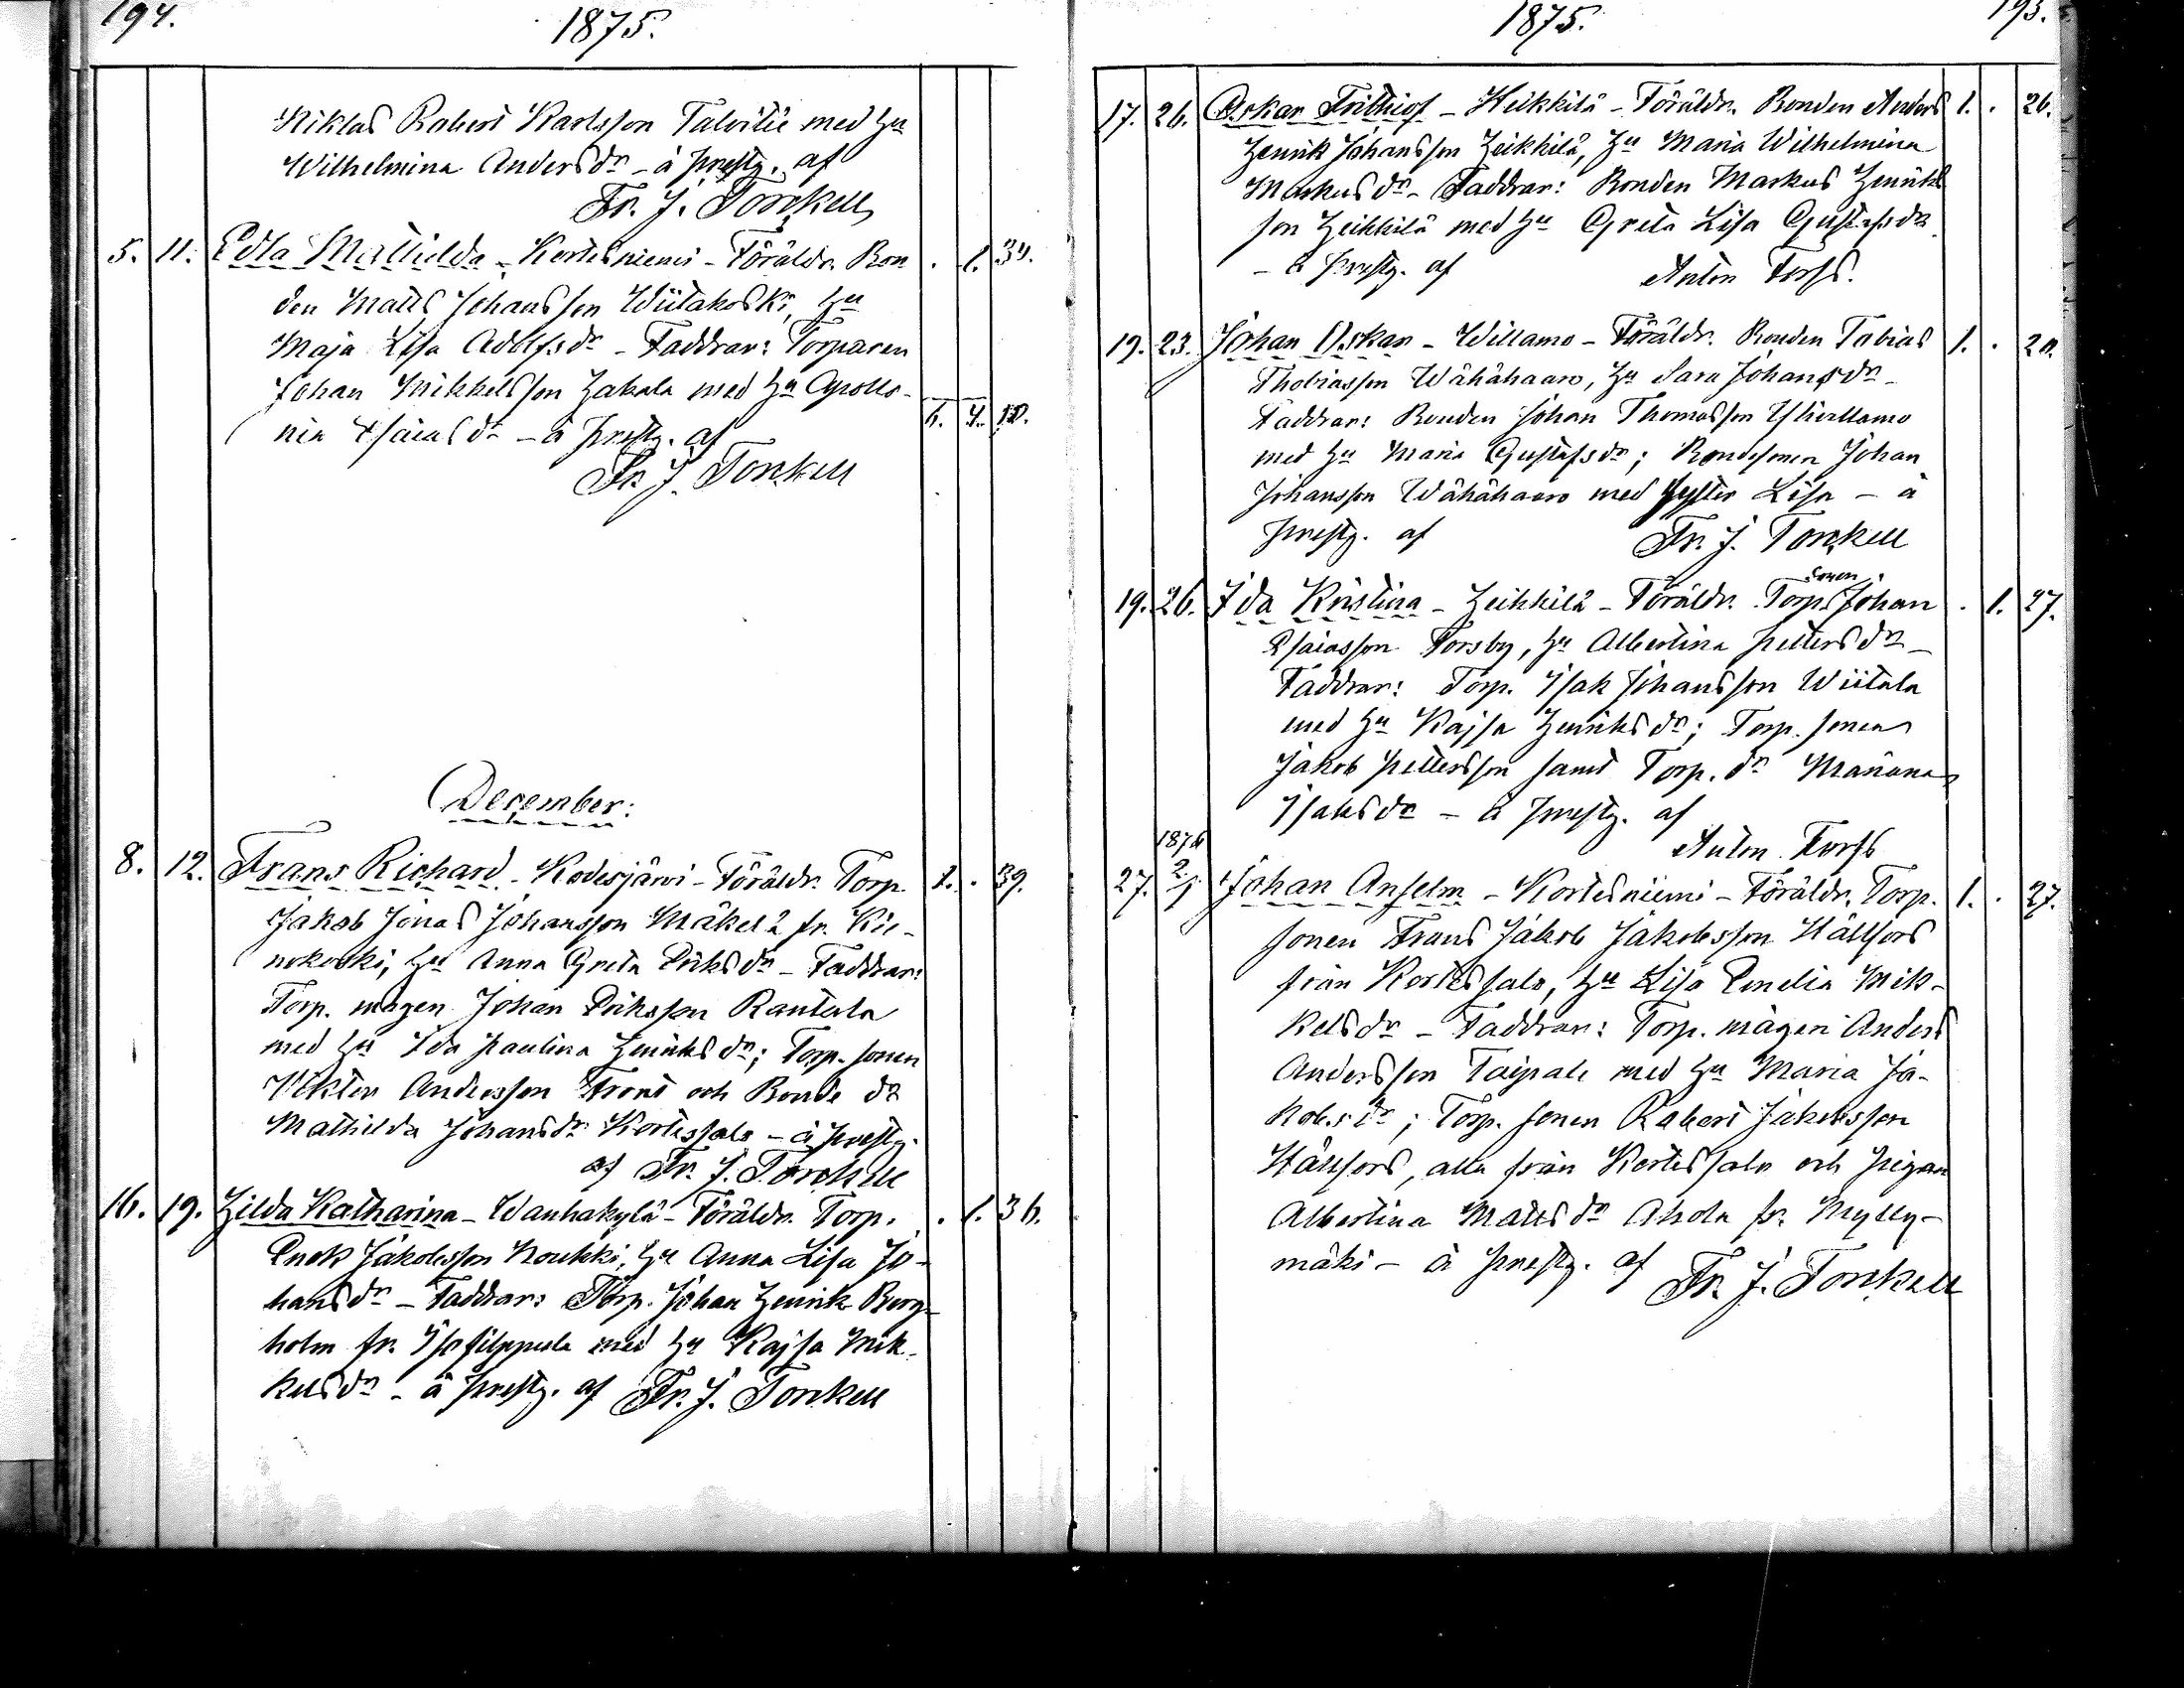 194.
1875.
Niklas Robert Karlsson Talvitie med hu
Wilhelmina Andersdr - å prestg. af
Fr. J. Torckell
5. 11. Edla Mathilda - Kortesniemi - Föräldr. Bon . 1. 34.
den Matts Johansson Wiitakoski, hu
Maja Lisa Adolfsdr - Faddrar: Torparen
Johan Mikkelsson Hakala med hu Apollo-
nia Esaiasdr - å prestg. af 6. 4. 10.
Fr. J. Torckell
December:
8. 12. Frans Richard - Kodesjärvi - Föräldr. Torp. 1. . 39.
Jakob Jonas Johansson Mäkelä fr. Kie-
nokoski, hu Anna Greta Eriksdr - Faddrar:
Torp. mågen Johan Eriksson Rantala
med hu Ida Paulina Henriksdr; Torp. sonen
Viktor Andersson Front och Bonde dr
Mathilda Johansdr Kortessalo - å prestg.
af Fr. J. Torckell
16. 19. Hilda Katharina - Wanhakylä - Föräldr. Torp. . 1. 36.
Enok Jakobsson Koukki, hu Anna Lisa Jo-
hansdr - Faddrar: Torp. Johan Henrik Berg-
holm fr. Isofilppula med hu Kajsa Mik-
kelsdr - å prestg. af Fr. J. Torckell
1875.
195.
17. 26. Oskar Frithiof - Heikkilä - Föräldr. Bonden Anders 1. . 26.
Henrik Johansson Heikkilä, hu Maria Wilhelmina
Markusdr - Faddrar: Bonden Markus Henriks
son Heikkilä med hu Greta Lisa Gustafsdr
- å prestg. af Anton Forss.
19. 23. Johan Oskar - Willamo - Föräldr. Bonden Tobias 1. . 20.
Thobiasson Wähähaaro, hu Sara Johansdr -
Faddrar: Bonden Johan Thomasson Yliwillamo
med hu Maria Gustafsdr; Bondesonen Johan
Johansson Wähähaaro med syster Lisa - å
prestg. af Fr. J. Torckell
19. 26. Ida Kristina - Heikkilä - Föräldr. Torp. sonen Johan . 1. 27.
Esaiasson Forsby, hu Albertina Pettersdr -
Faddrar: Torp. Isak Johansson Wiitala
med hu Kajsa Henriksdr; Torp. sonen
Jakob Pettersson samt Torp. dr Mariana
Isaksdr - å prestg. af
Anton Forss
1876
27. 2/1 Johan Anselm - Kortesniemi - Föräldr. Torp. 1. . 27.
sonen Frans Jakob Jakobsson Hällfors
från Kortessalo, hu Lisa Emelia Mik-
kelsdr - Faddrar: Torp. mågen Anders
Andersson Taipale med hu Maria Ja-
kobsdr; Torp. sonen Robert Jakobsson
Hällfors, alla från Kortessalo och pigan
Albertina Mattsdr Ahola fr. Mylly-
mäki - å prestg. af Fr. J. Torckell